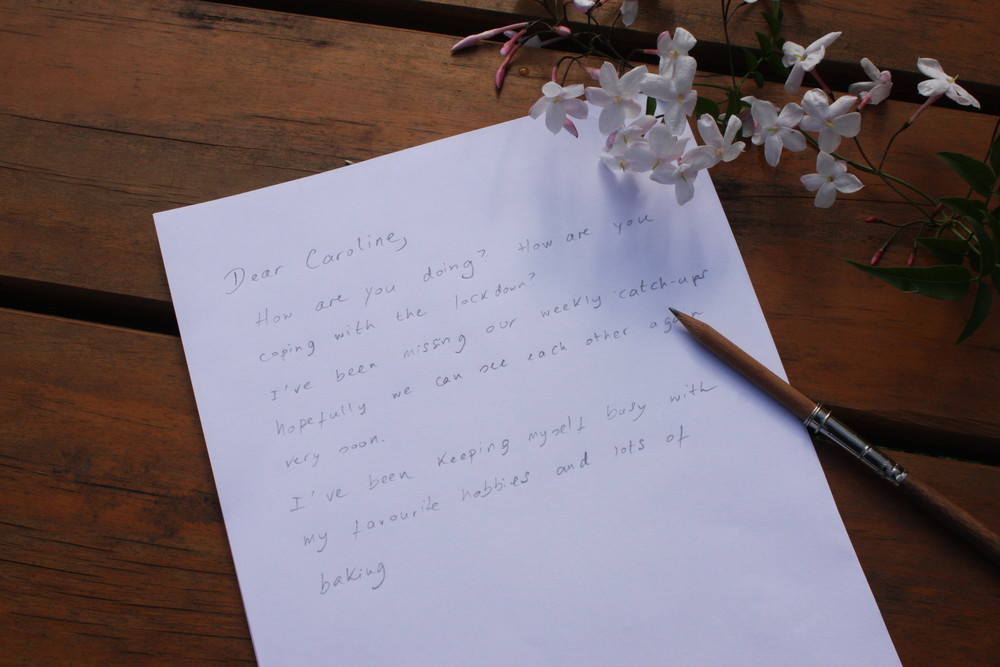 Dear Caroline,
How are you doing? How are you
coping with the lockdown?
I've been missng our weekly catch-ups
hopefully we can see each other again
very soon.
I've been keeping myself busy with
my favourite hobbies and lots of
baking